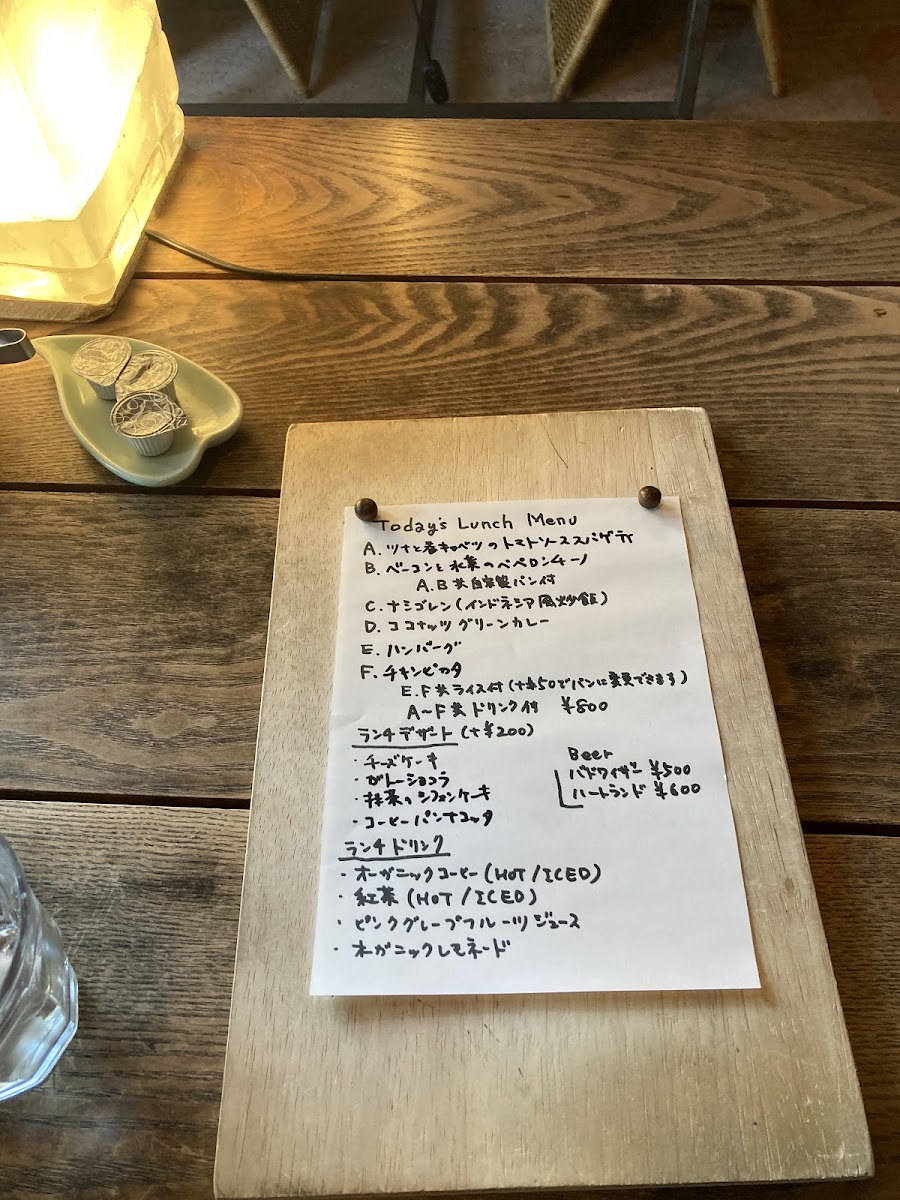 Today's Lunch Menu
A. ツナと春キャベツのトマトソーススパゲティ
B. ベーコンと水菜のペペロンチーノ
A.B共自家製パン付
C. ナシゴレン(インドネシア風炒飯)
D. ココナッツグリーンカレー
E. ハンバーグ
F. チキンピカタ
E.F共ライス付(+¥50でパンに変更できます)
A〜F共ドリンク付 ¥800
ランチデザート(+¥200)
・チーズケーキ
・ガトーショコラ
・抹茶のシフォンケーキ
・コーヒーパンナコッタ
Beer
バドワイザー ¥500
ハートランド ¥600
ランチドリンク
・オーガニックコーヒー(HOT/ICED)
・紅茶(HOT/ICED)
・ピンクグレープフルーツジュース
・オーガニックレモネード